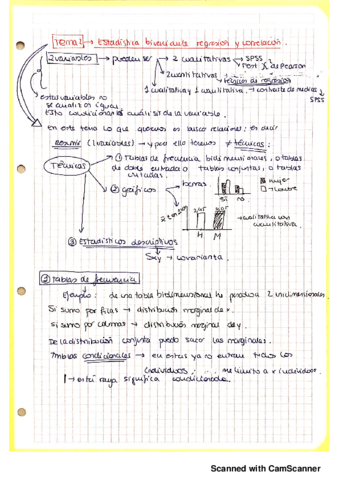 Tema 1 → Estadística bivariante regresión y correlación.
2 variables → pueden ser → 2 cualitativas → SPSS
→ Test χ de Pearson
→ 2 cuantitativas → técnicas de regresión
→ 1 cualitativa y 1 cuantitativa → contraste de medias
SPSS
estas variables no
se analizan igual
Esto condiciona el análisis de la variable.
En este tema lo que queremos es buscar relaciones: es decir
resumir (2 variables) → y por ello tenemos ≠ técnicas:
Técnicas
① Tablas de frecuencia, bidimensionales, o tablas
de doble entrada o tablas conjuntas, o tablas
cruzadas.
② gráficos
barras
mujer
hombre
SI no
H M
cualitativa con
cuantitativa.
③ Estadísticos descriptivos
Sxy → covarianza.
② Tablas de frecuencia
Ejemplo: de una tabla bidimensional he producido 2 unidimensionales.
Si sumo por filas → distribución marginal de x.
Si sumo por columnas → distribución marginal de y.
De la distribución conjunta puedo sacar las marginales.
Tablas condicionales → en estas ya no entran todos los
individuos. me limito a x individuos.
| → esta raya significa condicionada.
Scanned with CamScanner